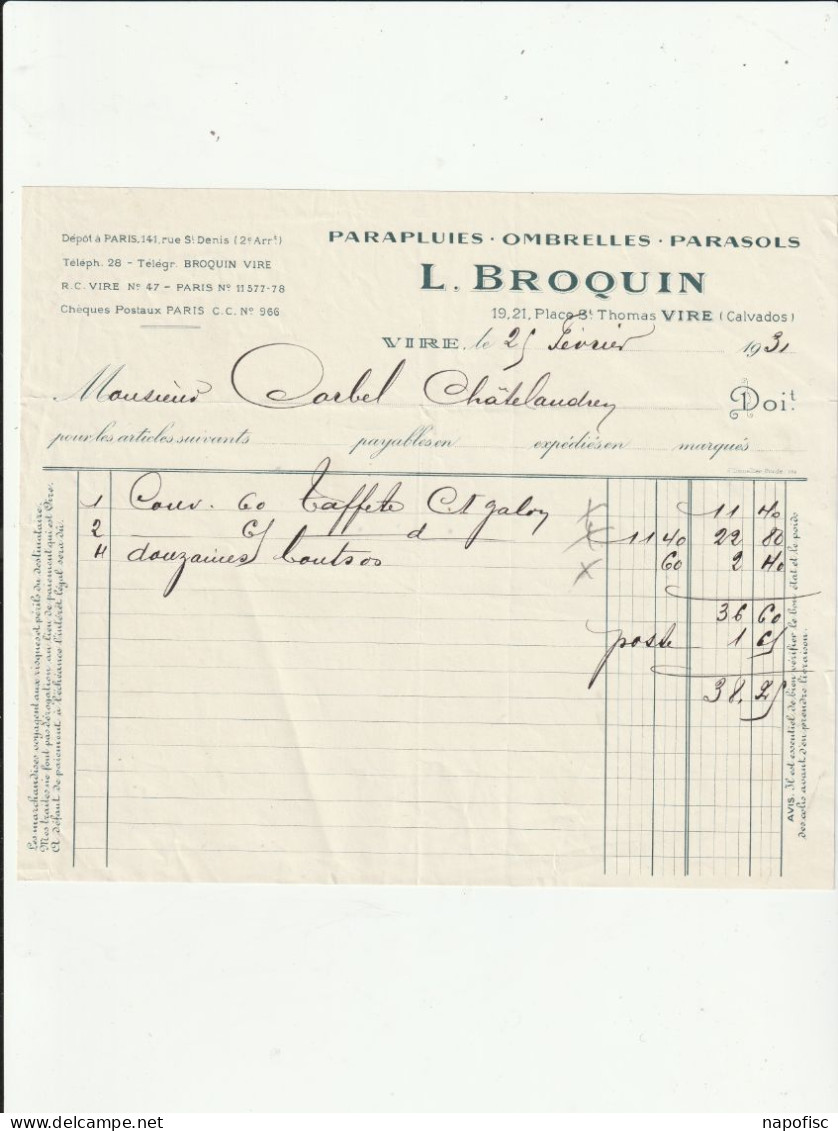 Dépôt à PARIS, 141, rue St Denis (2e Arrt)
Téléph. 28 - Télégr. BROQUIN VIRE
R.C. VIRE No 47 - PARIS No 11577-78
Chèques Postaux PARIS C.C. No 966
PARAPLUIES · OMBRELLES · PARASOLS
L. BROQUIN
19, 21, Place St Thomas VIRE (Calvados)
VIRE, le 25 février 1931
Monsieur Corbel Châtelaudren Doit.
pour les articles suivants payables en expédiés en marqués
1 Couv. 60 Taffete Ct galon x 11 40
2 65 d x 11 40 22 80
4 douzaines x 60 2 40
36 60
poste 1 65
38.25
Les marchandises voyagent aux risques et périls du destinataire.
Mes traites ne font pas dérogation au lieu de paiement qui est Vire.
A défaut de paiement à l'échéance l'intérêt légal sera dû.
AVIS. Il est essentiel de bien vérifier le bon état et le poids
des colis avant d'en prendre livraison.
napofisc